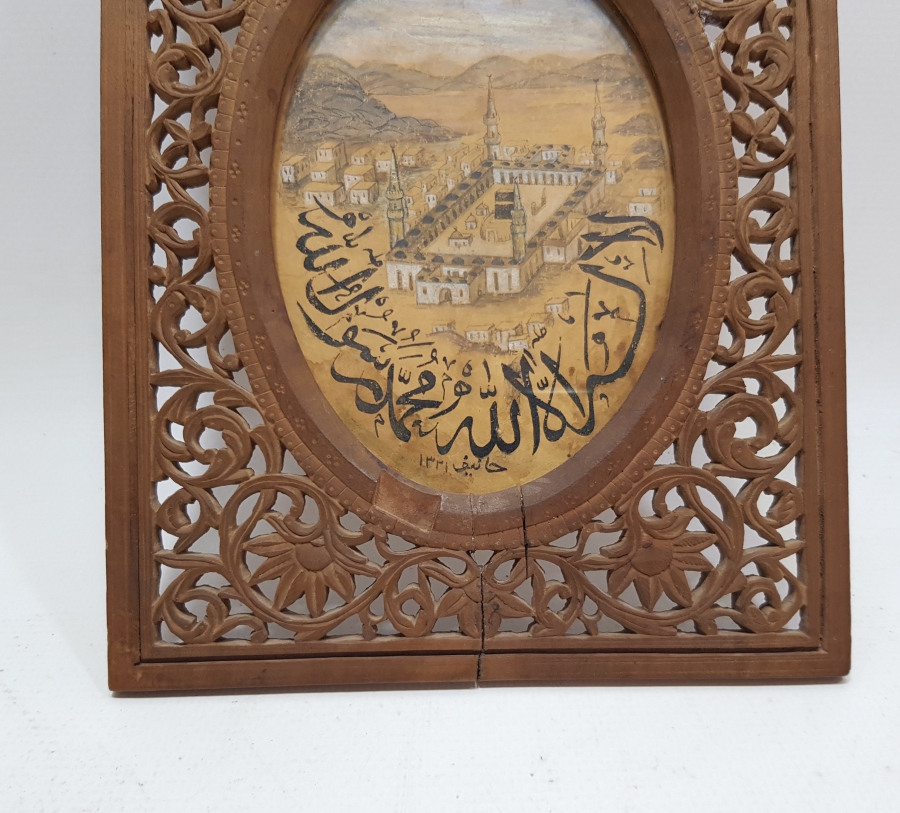 لا اله الّا اللّه محمّد رسول اللّه
حانيف ١٣٣١